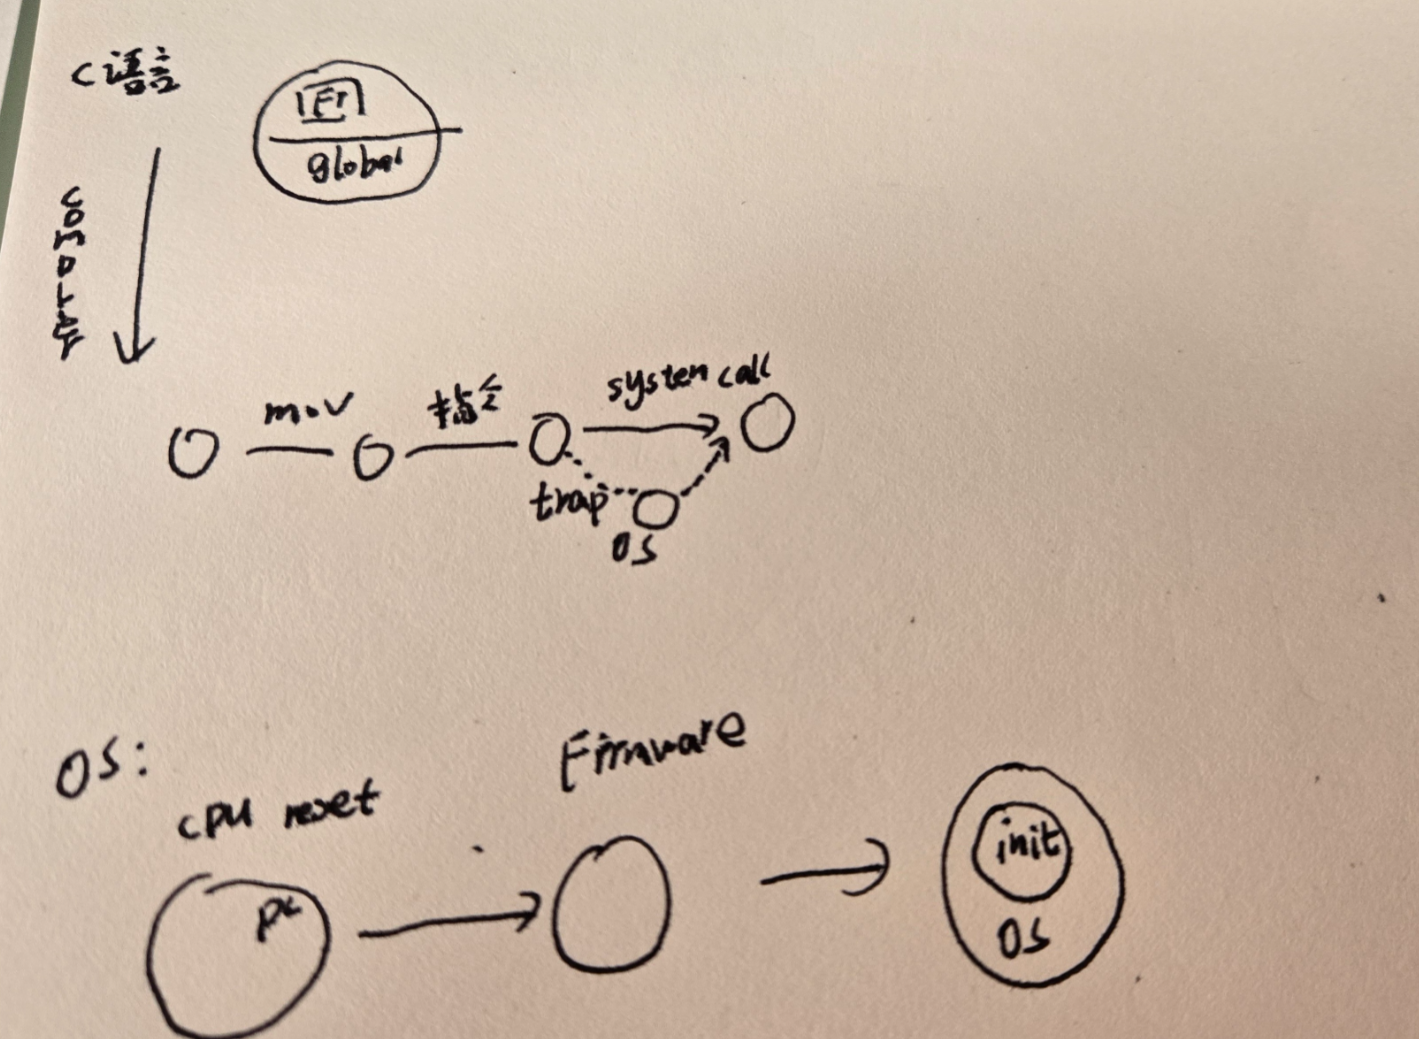 C语言
global
compiler
mov
指令
system call
trap
OS
OS:
CPU reset
Firmware
PC
init
OS